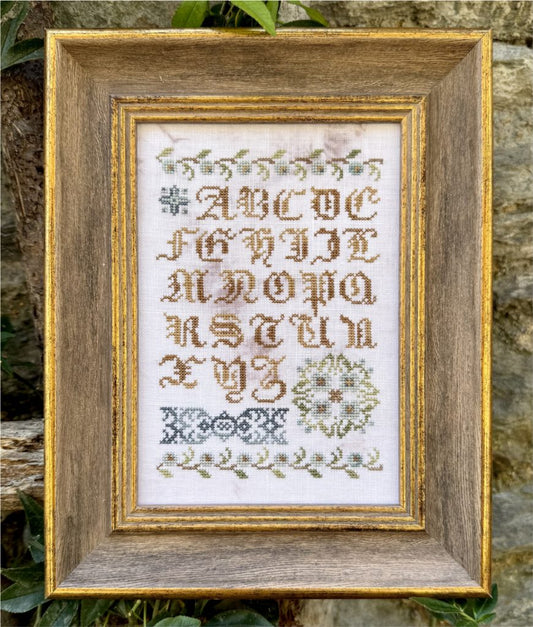 A B C D E
F G H I K L
M N O P Q
R S T U V
X Y Z